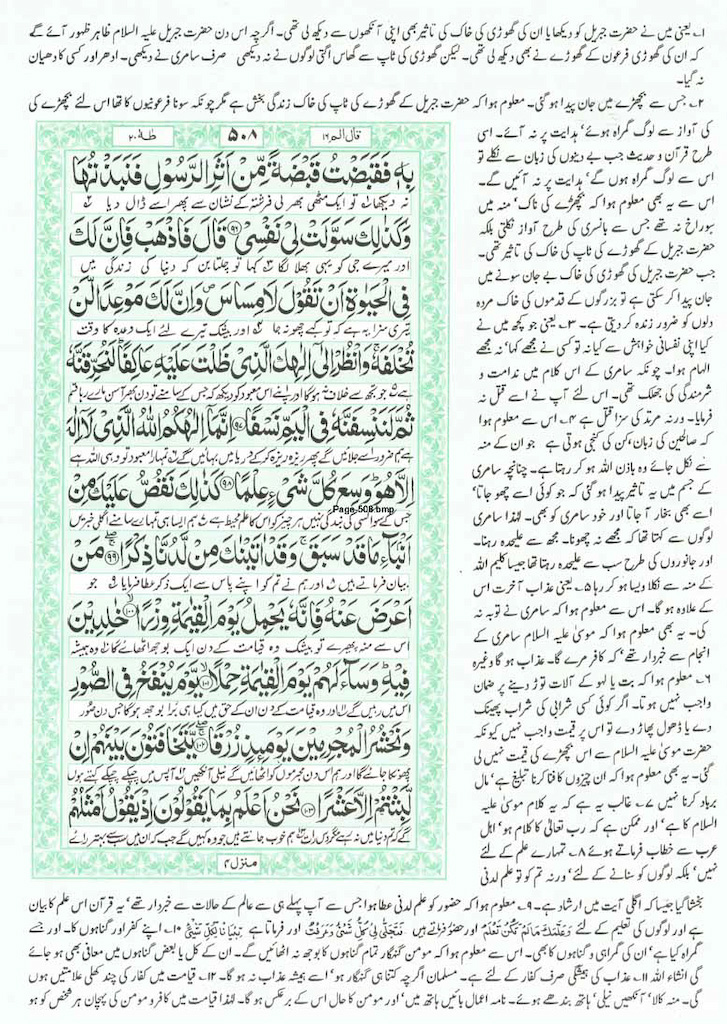 ۱۔ یعنی میں نے حضرت جبریل کو دیکھا یا ان کی گھوڑی کی خاک کی تاثیر بھی اپنی آنکھوں سے دیکھ لی تھی۔ اگرچہ اس دن حضرت جبریل علیہ السلام ظاہر ظہور آئے گے
کہ ان کی گھوڑی فرعون کے گھوڑے نے بھی دیکھ لی تھی۔ لیکن گھوڑی کی ٹاپ سے گھاس اگتی لوگوں نے نہ دیکھی صرف سامری نے دیکھی۔ ادھر اور کسی کا دھیان
نہ گیا۔
۲۔ جس سے بچھڑے میں جان پیدا ہو گئی۔ معلوم ہوا کہ حضرت جبریل کے گھوڑے کی ٹاپ کی خاک زندگی بخش ہے مگر چونکہ سونا فرعونیوں کا تھا اس لئے بچھڑے کی
قال الم ۱۶
۵۰۸
طٰہٰ ۲۰
بِهٖ فَقَبَضْتُ قَبْضَةً مِّنْ اَثَرِ الرَّسُوْلِ فَنَبَذْتُهَا
نہ دیکھا تو ایک مٹھی بھر لی فرشتہ کے نشان سے پھر اسے ڈال دیا
وَكَذٰلِكَ سَوَّلَتْ لِیْ نَفْسِیْ ۹۶ قَالَ فَاذْهَبْ فَاِنَّ لَكَ
اور میرے جی کو یہی بھلا لگا کہا تو چلتا بن کہ دنیا کی زندگی میں
فِی الْحَیٰوةِ اَنْ تَقُوْلَ لَا مِسَاسَ وَاِنَّ لَكَ مَوْعِدًا لَّنْ
تیری سزا یہ ہے کہ تو کہے چھو نہ جا اور بیشک تیرے لئے ایک وعدہ کا وقت
تُخْلَفَهٗ وَانْظُرْ اِلٰۤی اِلٰهِكَ الَّذِیْ ظَلْتَ عَلَیْهِ عَاكِفًا لَنُحَرِّقَنَّهٗ
ہے جو تجھ سے خلاف نہ ہوگا اور اپنے اس معبود کو دیکھ جس کے سامنے تو دن بھر آسن مارے رہا قسم
ثُمَّ لَنَنْسِفَنَّهٗ فِی الْیَمِّ نَسْفًا ۹۷ اِنَّمَاۤ اِلٰهُكُمُ اللّٰهُ الَّذِیْ لَاۤ اِلٰهَ
ہے ہم ضرور اسے جلائیں گے پھر ریزہ ریزہ کر کے دریا میں بہائیں گے تمہارا معبود تو وہی اللہ ہے
اِلَّا هُوَ وَسِعَ كُلَّ شَیْءٍ عِلْمًا ۹۸ كَذٰلِكَ نَقُصُّ عَلَیْكَ مِنْ
جس کے سوا کسی کی بندگی نہیں ہر چیز کو اس کا علم محیط ہے ہم ایسا ہی تمہارے سامنے اگلی خبریں
Page-508.bmp
اَنْۢبَآءِ مَا قَدْ سَبَقَ وَقَدْ اٰتَیْنٰكَ مِنْ لَّدُنَّا ذِكْرًا ۹۹ مَنْ
بیان فرماتے ہیں اور ہم نے تم کو اپنے پاس سے ایک ذکر عطا فرمایا جو
اَعْرَضَ عَنْهُ فَاِنَّهٗ یَحْمِلُ یَوْمَ الْقِیٰمَةِ وِزْرًا ۱۰۰ خٰلِدِیْنَ
اس سے منہ پھیرے تو بیشک وہ قیامت کے دن ایک بوجھ اٹھائے گا وہ ہمیشہ
فِیْهِ وَسَآءَ لَهُمْ یَوْمَ الْقِیٰمَةِ حِمْلًا ۱۰۱ یَّوْمَ یُنْفَخُ فِی الصُّوْرِ
اس میں رہیں گے اور وہ قیامت کے دن ان کے حق میں کیا ہی برا بوجھ ہوگا جس دن صور
وَنَحْشُرُ الْمُجْرِمِیْنَ یَوْمَىِٕذٍ زُرْقًا ۱۰۲ یَّتَخَافَتُوْنَ بَیْنَهُمْ اِنْ
پھونکا جائے گا اور ہم اس دن مجرموں کو اٹھائیں گے نیلی آنکھیں آپس میں چپکے چپکے کہتے ہوں
لَّبِثْتُمْ اِلَّا عَشْرًا ۱۰۳ نَحْنُ اَعْلَمُ بِمَا یَقُوْلُوْنَ اِذْ یَقُوْلُ اَمْثَلُهُمْ
گے کہ تم دنیا میں نہ رہے مگر دس رات ہم خوب جانتے ہیں جو وہ کہیں گے جب کہ ان میں سب سے بہتر رائے
منزل ۴
کی آواز سے لوگ گمراہ ہوئے' ہدایت پر نہ آئے۔ اسی
طرح قرآن و حدیث جب بے دینوں کی زبان سے نکلے تو
اس سے لوگ گمراہ ہوں گے' ہدایت پر نہ آئیں گے۔
اس سے یہ بھی معلوم ہوا کہ بچھڑے کی ناک' منہ میں
سوراخ نہ تھے جس سے بانسری کی طرح آواز نکلتی بلکہ
حضرت جبریل کے گھوڑے کی ٹاپ کی خاک کی تاثیر تھی۔
جب حضرت جبریل کی گھوڑی کی خاک بے جان سونے میں
جان پیدا کر سکتی ہے تو بزرگوں کے قدموں کی خاک مردہ
دلوں کو ضرور زندہ کر دیتی ہے۔ ۳۔ یعنی جو کچھ میں نے
کیا اپنی نفسانی خواہش سے کیا نہ تو کسی نے مجھے کہا' نہ مجھے
الہام ہوا۔ چونکہ سامری کے اس کلام میں ندامت و
شرمندگی کی جھلک تھی۔ اس لئے آپ نے اسے قتل نہ
فرمایا۔ ورنہ مرتد کی سزا قتل ہے ۴۔ اس سے معلوم ہوا
کہ صالحین کی زبان' کن کی کنجی ہوتی ہے جو ان کے منہ
سے نکل جائے وہ باذن اللہ ہو کر رہتا ہے۔ چنانچہ سامری
کے جسم میں یہ تاثیر پیدا ہو گئی کہ جو کوئی اسے چھو جاتا'
اسے بھی بخار آ جاتا اور خود سامری کو بھی۔ لہٰذا سامری
لوگوں سے کہتا تھا کہ مجھے نہ چھونا۔ مجھ سے علیحدہ رہنا۔
اور جانوروں کی طرح سب سے علیحدہ رہتا تھا جیسا کلیم اللہ
کے منہ سے نکلا ویسا ہو کر رہا ۵۔ یعنی عذاب آخرت اس
کے علاوہ ہو گا۔ اس سے معلوم ہوا کہ سامری نے توبہ نہ
کی۔ یہ بھی معلوم ہوا کہ موسیٰ علیہ السلام سامری کے
انجام سے خبردار تھے' کہ کافر مرے گا۔ عذاب ہو گا وغیرہ
۶۔ معلوم ہوا کہ بت یا لہو کے آلات توڑ دینے پر ضمان
واجب نہیں ہوتا۔ اگر کوئی کسی شرابی کی شراب پھینک
دے یا ڈھول پھاڑ دے تو اس پر قیمت واجب نہیں کیونکہ
حضرت موسیٰ علیہ السلام سے اس بچھڑے کی قیمت نہیں لی
گئی۔ یہ بھی معلوم ہوا کہ ان چیزوں کا فنا کرنا تبلیغ ہے' مال
برباد کرنا نہیں ۷۔ غالب یہ ہے کہ یہ کلام موسیٰ علیہ
السلام کا ہے' اور ممکن ہے کہ رب تعالیٰ کا کلام ہو' اہل
عرب سے خطاب فرماتے ہوئے ۸۔ تمہارے علم کے لئے
نہیں' بلکہ لوگوں کو سنانے کے لئے' ورنہ تم کو تو علم لدنی
بخشا گیا جیسا کہ اگلی آیت میں ارشاد ہے۔ ۹۔ معلوم ہوا کہ حضور کو علم لدنی عطا ہوا جس سے آپ پہلے ہی سے عالم کے حالات سے خبردار تھے' یہ قرآن اس علم کا بیان
ہے اور لوگوں کی تعلیم کے لئے وَعَلَّمَكَ مَا لَمْ تَكُنْ تَعْلَمُ اور حضور فرماتے ہیں فَتَجَلّٰی لِیْ كُلُّ شَیْءٍ وَعَرَفْتُ اور فرماتا ہے تِبْیَانًا لِّكُلِّ شَیْءٍ ۱۰۔ اپنے کفر اور گناہوں کا۔ اور جسے
گمراہ کیا ہے' ان کی گمراہی و گناہوں کا بھی۔ اس سے معلوم ہوا کہ مومن گنہگار تمام گناہوں کا بوجھ نہ اٹھائیں گے۔ ان کے کل یا بعض گناہوں میں معافی بھی ہو جائے
گی انشاء اللہ ۱۱۔ عذاب کی ہمیشگی صرف کفار کے لئے ہے۔ مسلمان اگرچہ کتنا ہی گنہگار ہو' اسے ہمیشہ عذاب نہ ہو گا۔ ۱۲۔ قیامت میں کفار کی چند کھلی علامتیں ہوں
گی۔ منہ کالا' آنکھیں نیلی' ہاتھ بندھے ہوئے۔ نامہ اعمال بائیں ہاتھ میں' اور مومن کا حال اس کے برعکس ہو گا۔ لہٰذا قیامت میں کافر و مومن کی پہچان ہر شخص کو ہو